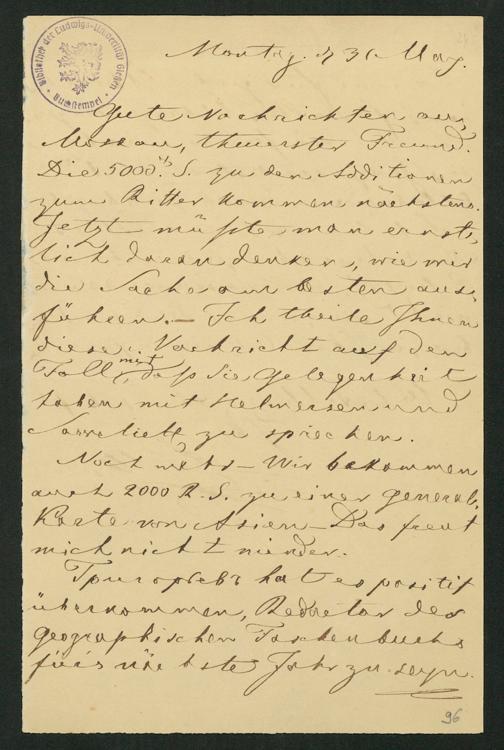 Bibliothek der Ludwigs-Universität Giessen
Montag. d 31. May.
Gute Nachrichten aus
Moskau, theuerster Freund.
Die 5000 S. zu den Additionen
zum Ritter kommen nächstens.
Jetzt müßte man ernst-
lich daran denken, wie wir
die Sache am besten aus-
führen. – Ich theile Ihnen
diese Nachricht auf den
Fall mit, daß Sie Gelegenheit
haben mit Helmersen und
Sawelieff zu sprechen.
Noch mehr – Wir bekommen
auch 2000 R. S. zu einer General-
Karte von Asien – Das freut
mich nicht minder.
hat es positif
übernommen, Redactor des
geographischen Taschenbuchs
für's nächste Jahr zu seyn.
96